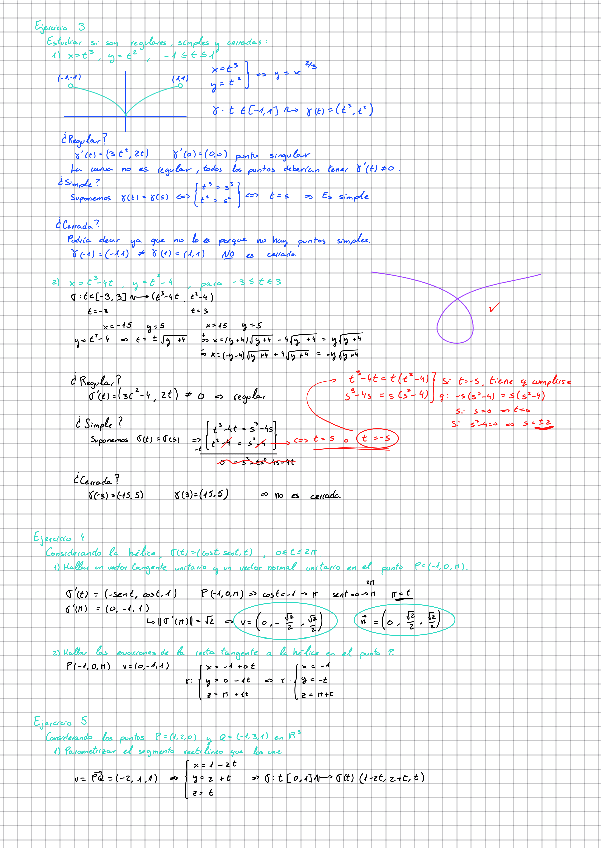 Ejercicio 3
Estudiar si son regulares, simples y cerradas:
1) x=t³, y=t², -1≤t≤1
(-1,1) (1,1)
x=t³
y=t² } ⇔ y = x^2/3
γ: t ∈ [-1,1] ⟿ γ(t) = (t³, t²)
¿Regular?
γ'(t) = (3t², 2t) γ'(0) = (0,0) punto singular
La curva no es regular, todos los puntos deberían tener γ'(t) ≠ 0.
¿Simple?
Suponemos γ(t) = γ(s) ⇔ { t³ = s³
t² = s² } ⇔ t = s ⇒ Es simple
¿Cerrada?
Podría decir ya que no lo es porque no hay puntos simples.
γ(-1) = (-1,1) ≠ γ(1) = (1,1) NO es cerrada
2) x = t³-4t, y = t²-4, para -3≤t≤3
σ: t∈[-3,3] ⟿ (t³-4t, t²-4)
t=-3 t=3
x=-15 y=5 x=15 y=5
y=t²-4 ⇒ t = ±√y+4 ⇒ x=(y+4)√y+4 - 4√y+4 = y√y+4
⇒ x=(-y-4)√y+4 + 4√y+4 = -y√y+4
¿Regular?
σ'(t) = (3t²-4, 2t) ≠ 0 ⇒ regular
t³-4t = t(t²-4) } Si t=-s, tiene q cumplirse
s³-4s = s(s²-4) } q: -s(s²-4) = s(s²-4)
Si s=0 ⇒ t=0
Si s²-4=0 ⇒ s=±2
¿Simple?
Suponemos σ(t) = σ(s) ⇒ [ t³-4t = s³-4s
t²-4 = s²-4 ] ⇔ t=s o t=-s
¿Cerrada?
γ(-3)=(-15,5) γ(3)=(15,5) ⇒ no es cerrada
Ejercicio 4
Considerando la hélice, σ(t)=(cost, sent, t), 0≤t≤2π
1) Hallar un vector tangente unitario y un vector normal unitario en el punto P=(-1,0,π).
σ'(t) = (-sent, cost, 1) P(-1,0,π) ⇒ cost=-1 → π sent=0 → π π=t
σ'(π) = (0, -1, 1)
↳ ||σ'(π)|| = √2 ⇒ v=(0, -√2/2, √2/2) n=(0, √2/2, √2/2)
2) Hallar las ecuaciones de la recta tangente a la hélice en el punto P.
P(-1,0,π) v=(0,-1,1)
r: { x = -1 + 0t
y = 0 - 1t
z = π + 1t ⇒ r: { x = -1
y = -t
z = π+t
Ejercicio 5
Considerando los puntos P=(1,2,0) y Q=(-1,3,1) en R³
1) Parametrizar el segmento rectilíneo que los une
v = PQ = (-2,1,1) ⇒ { x = 1 - 2t
y = 2 + t
z = t ⇒ σ: t [0,1] ⟿ σ(t) (1-2t, 2+t, t)